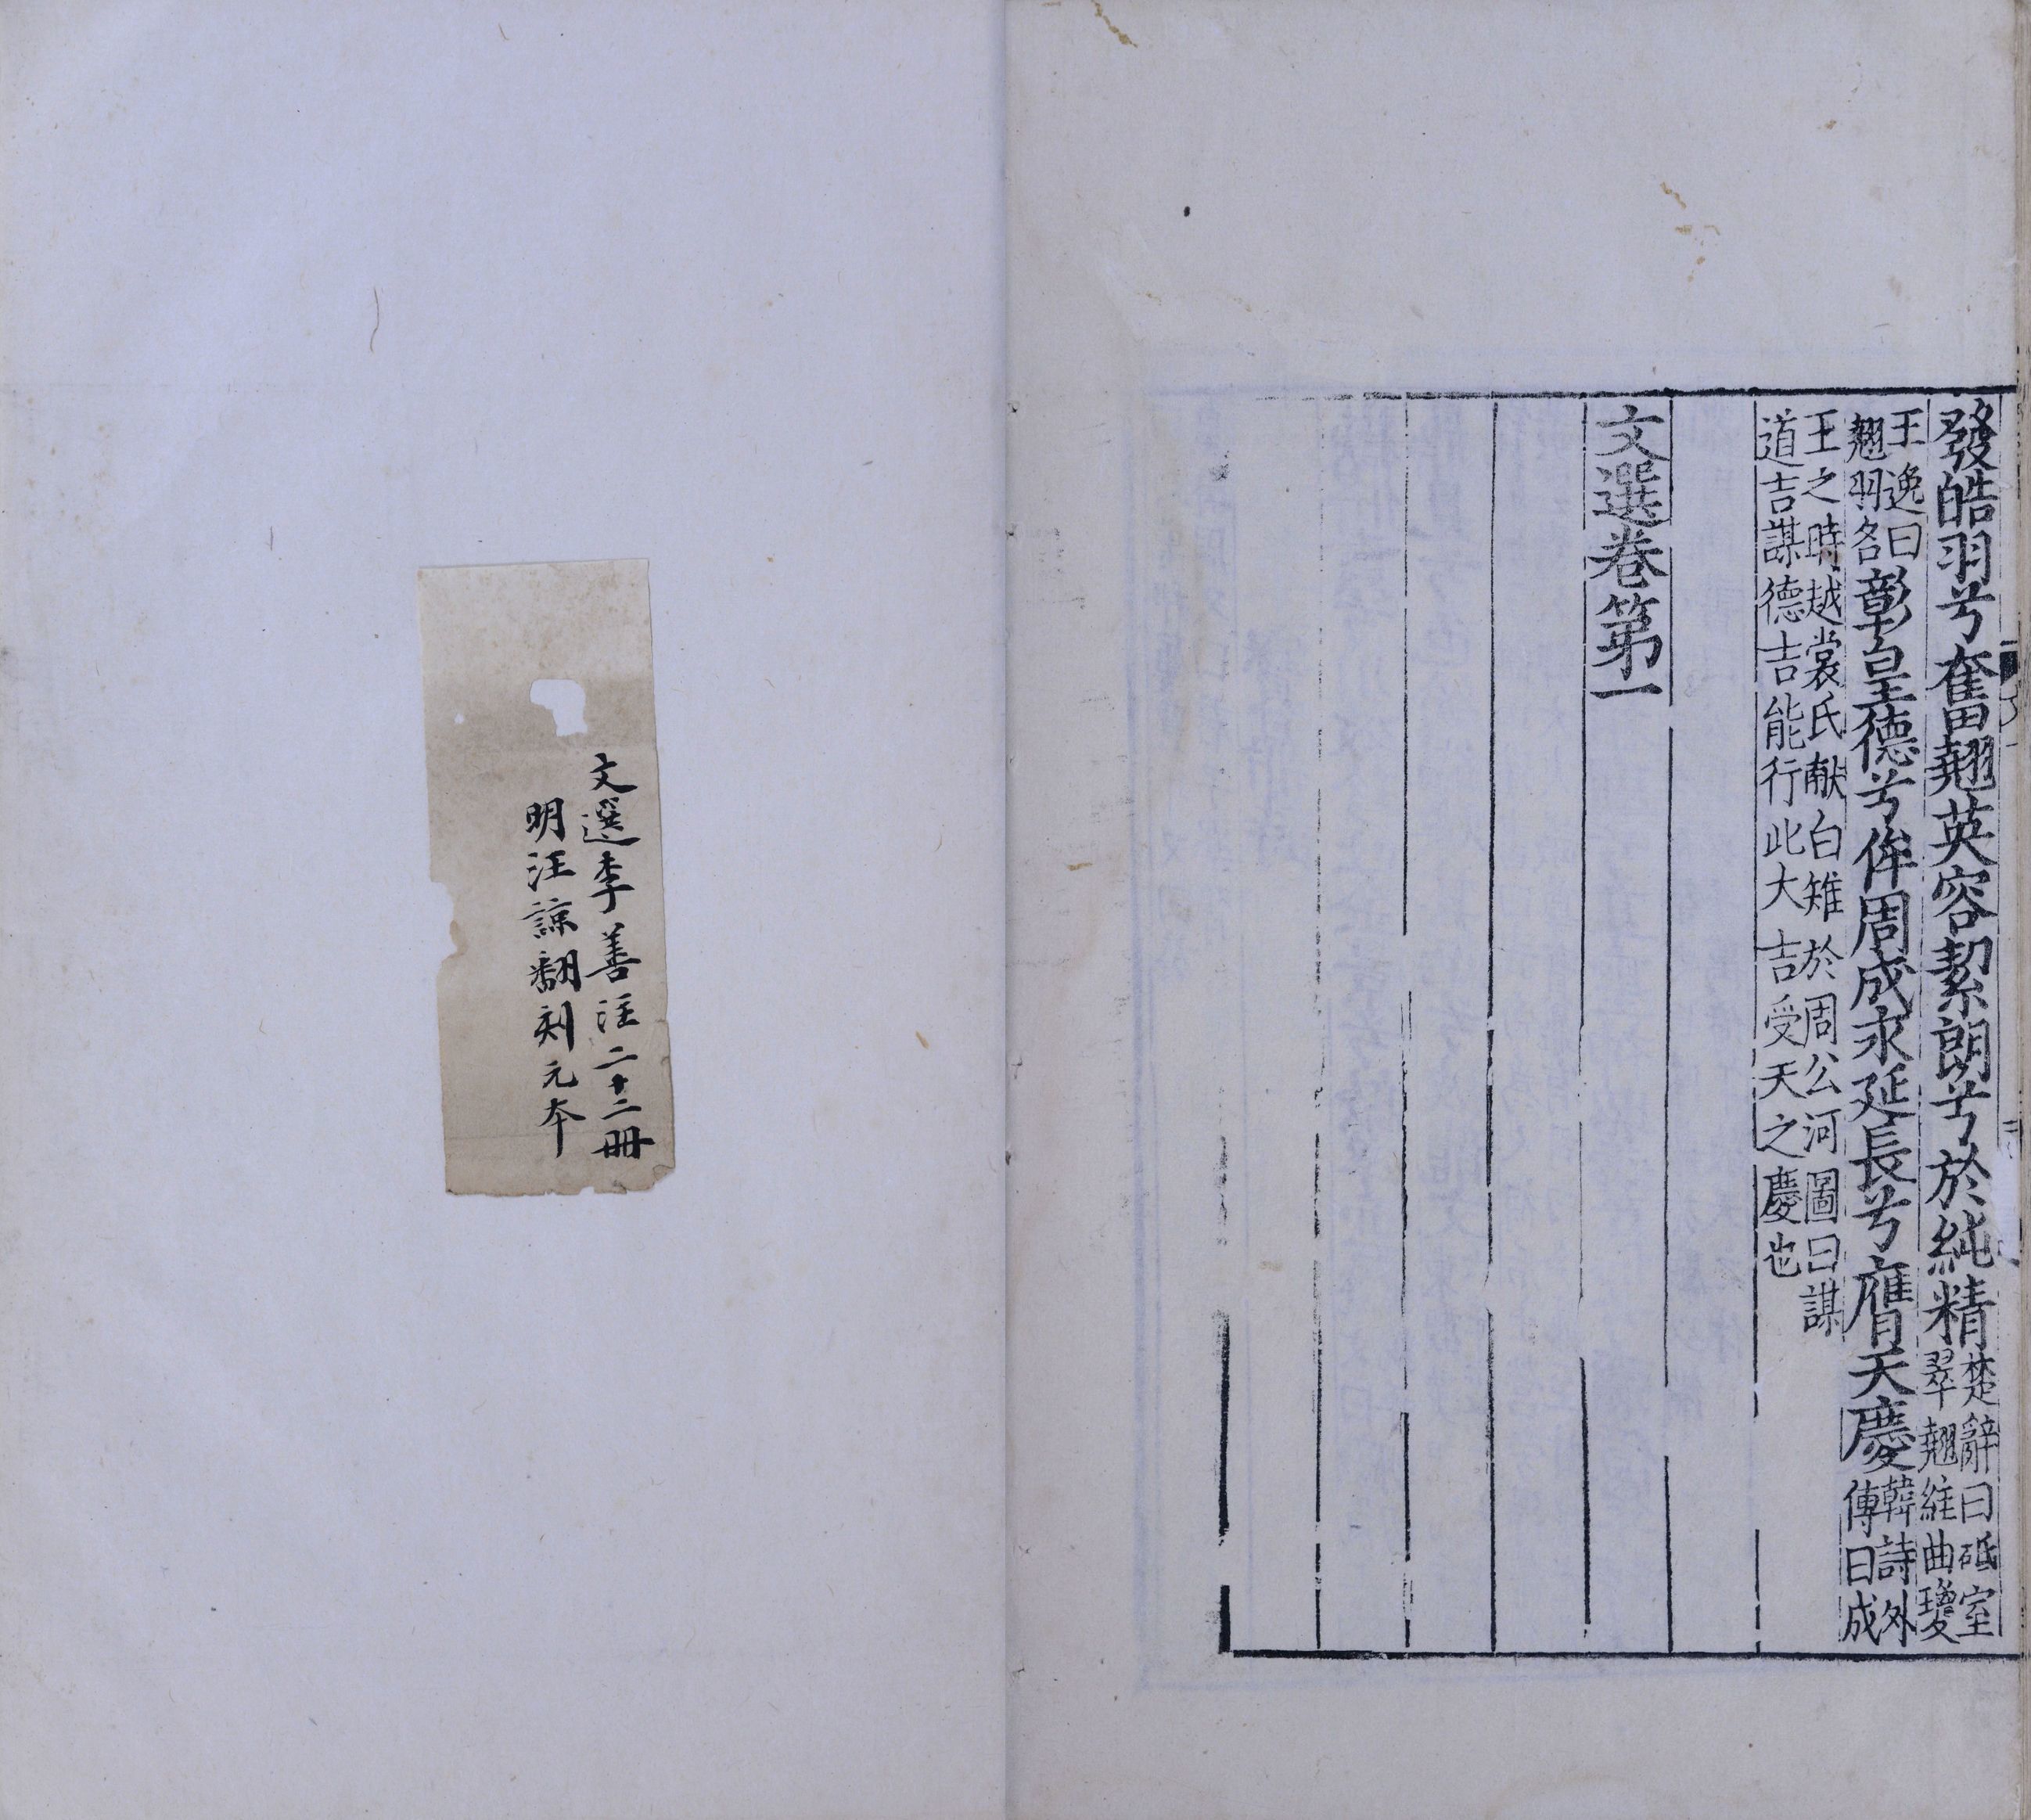 發皓羽兮奮翹英容絜朗兮於純精楚辭曰砥室翠翹絓曲瓊
王逸曰翹羽名彰皇德兮侔周成永延長兮膺天慶韓詩外傳曰成
王之時越裳氏献白雉於周公河圖曰謀道吉謀德吉能行此大吉受天之慶也
文選卷第一
文選李善注二十二冊
明汪諒翻刻元本